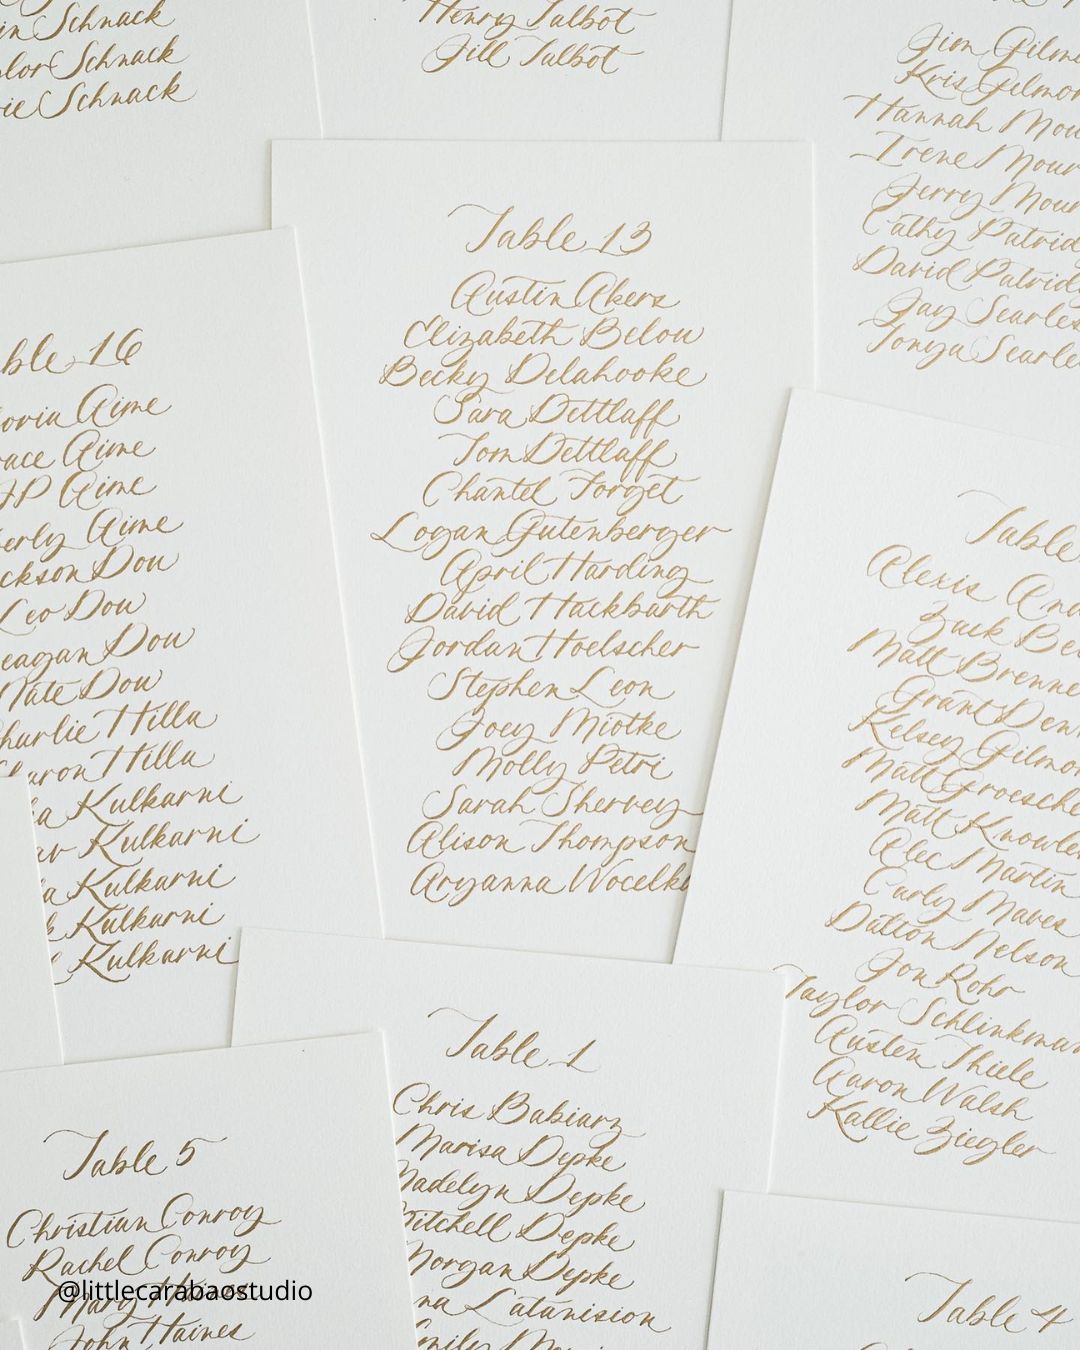 Schnack
Schnack
Schnack
Henry Talbot
Jill Talbot
Jim
Kris
Hannah
Irene
Jerry
Cathy
David
Jay
Tonya
Table 13
Austin Akers
Elizabeth Belou
Becky Delahooke
Sara Dettlaff
Tom Dettlaff
Chantel Forget
Logan Gutenberger
April Harding
David Hackbarth
Jordan Hoelscher
Stephen Leon
Joey Miotke
Molly Petri
Sarah Shervey
Alison Thompson
Aryanna
16
Aime
Aime
JP Aime
Aime
Dou
Leo Dou
Dou
Nate Dou
Charlie Hilla
Hilla
Kulkarni
Kulkarni
Kulkarni
Kulkarni
Kulkarni
Table
Alexis
Zack
Matt
Grant
Kelsey
Matt
Matt
Alec Martin
Carly Maves
Dalton Nelson
Jon Rohr
Taylor
Austen Thiele
Aaron Walsh
Kallie Ziegler
Table 1
Chris Babiarz
Marisa Depke
Madelyn Depke
Mitchell Depke
Morgan Depke
Latanision
Table 5
Christian Conroy
Rachel Conroy
Mary Haines
John Haines
Table 4
@littlecarabaostudio